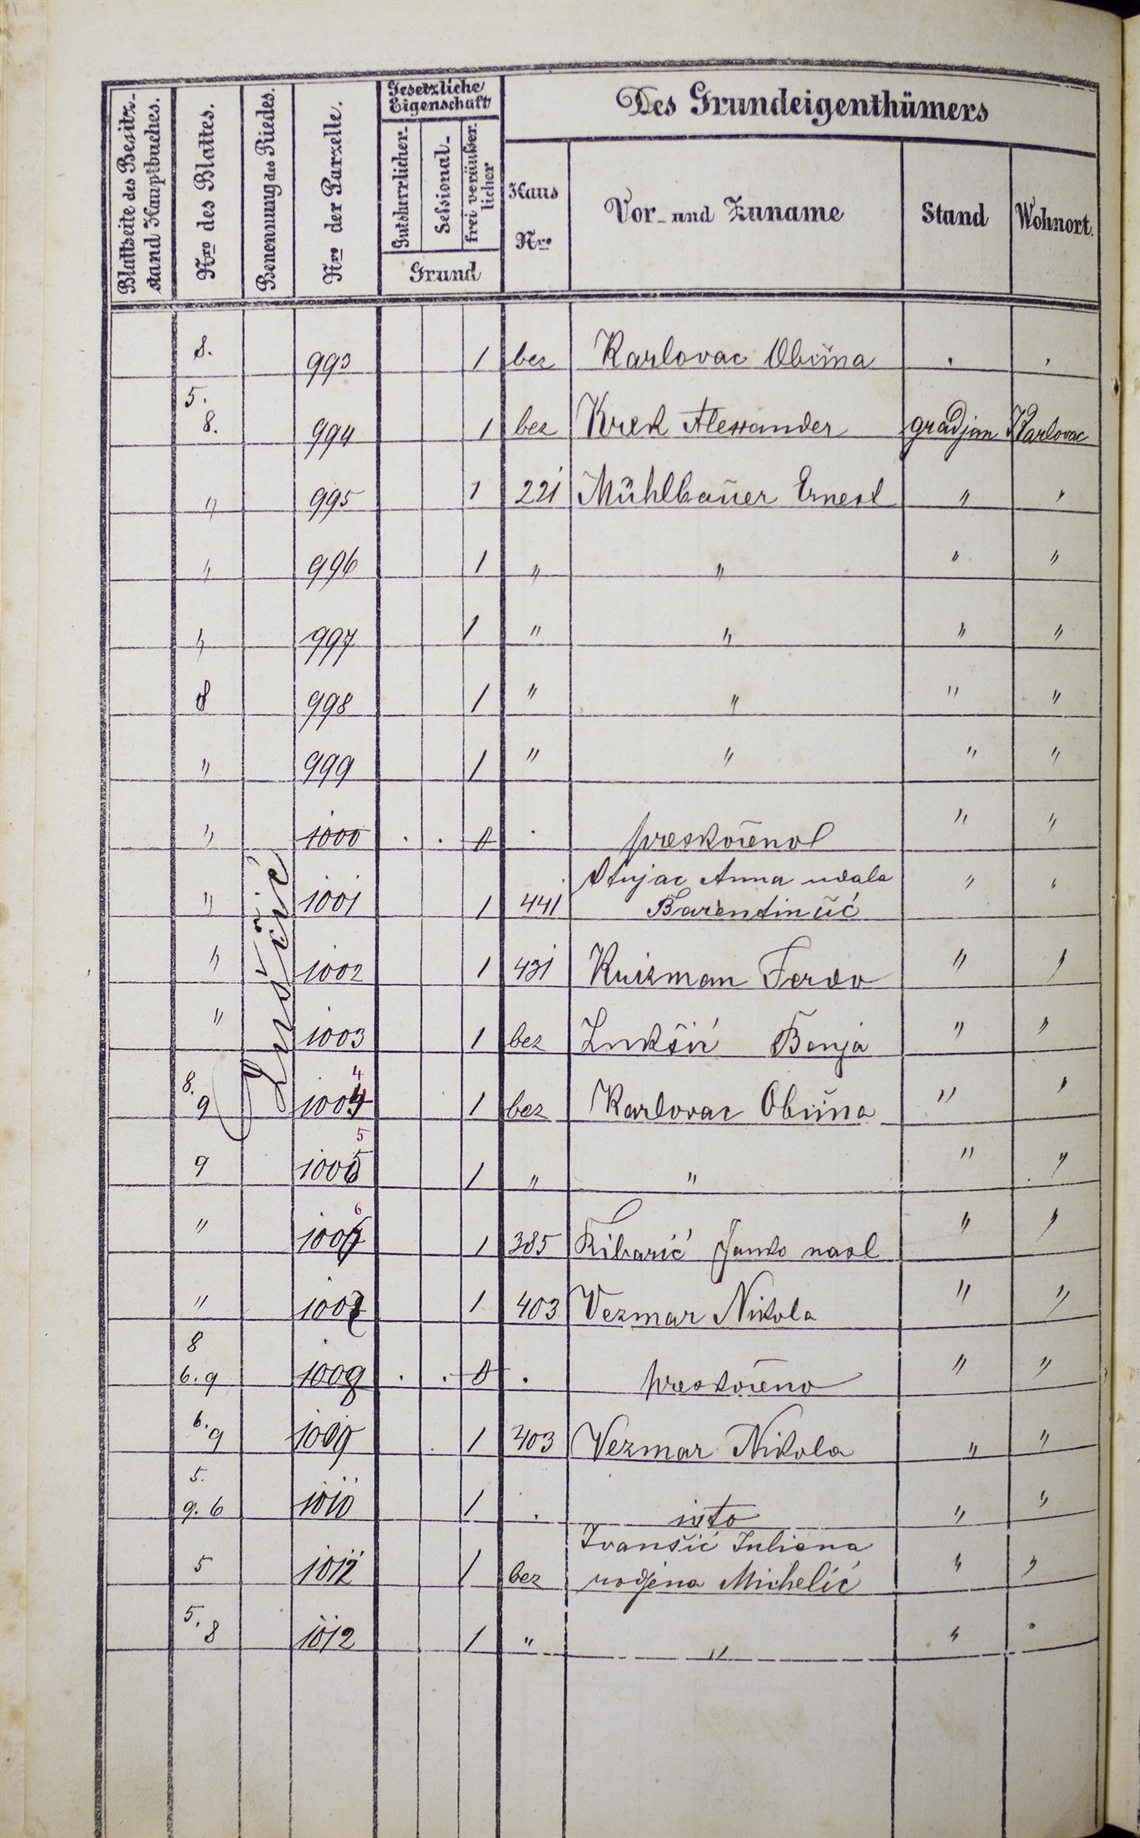 Blattseite des Besitz-
stand Hauptbuches.
Nro des Blattes.
Benennung des Riedes.
Nro der Parzelle.
Gesetzliche
Eigenschaft
Gutsherrlicher.
Sessional-
frei veräußer-
licher
Grund
Des Grundeigenthümers
Haus
Nro
Vor- und Zuname
Stand
Wohnort.
Luščić
8. 993 1 bez Karlovac Obćina . .
5.
8. 994 1 bez Krek Alexander gradjan Karlovac
" 995 1 221 Mühlbauer Ernest " "
" 996 1 " " " "
" 997 1 " " " "
8 998 1 " " " "
" 999 1 " " " "
" 1000 . . 0 . preskočeno " "
Anna udala
" 1001 1 441 " "
" 1002 1 431 Ferdo " "
" 1003 1 bez Lukšić Benja " "
8.
9 1004 4 1 bez Karlovac Obćina " "
9 1005 5 1 " " " "
" 1006 6 1 385 Ribarić Janko nasl " "
" 1007 1 403 Vezmar Nikola " "
8
6. 9 1008 . . 0 . preskočeno " "
6. 9 1009 1 403 Vezmar Nikola " "
5.
9. 6 1010 1 . isto " "
Ivanšić Juliana
5 1011 1 bez rodjena Michelić " "
5. 8 1012 1 " " " "